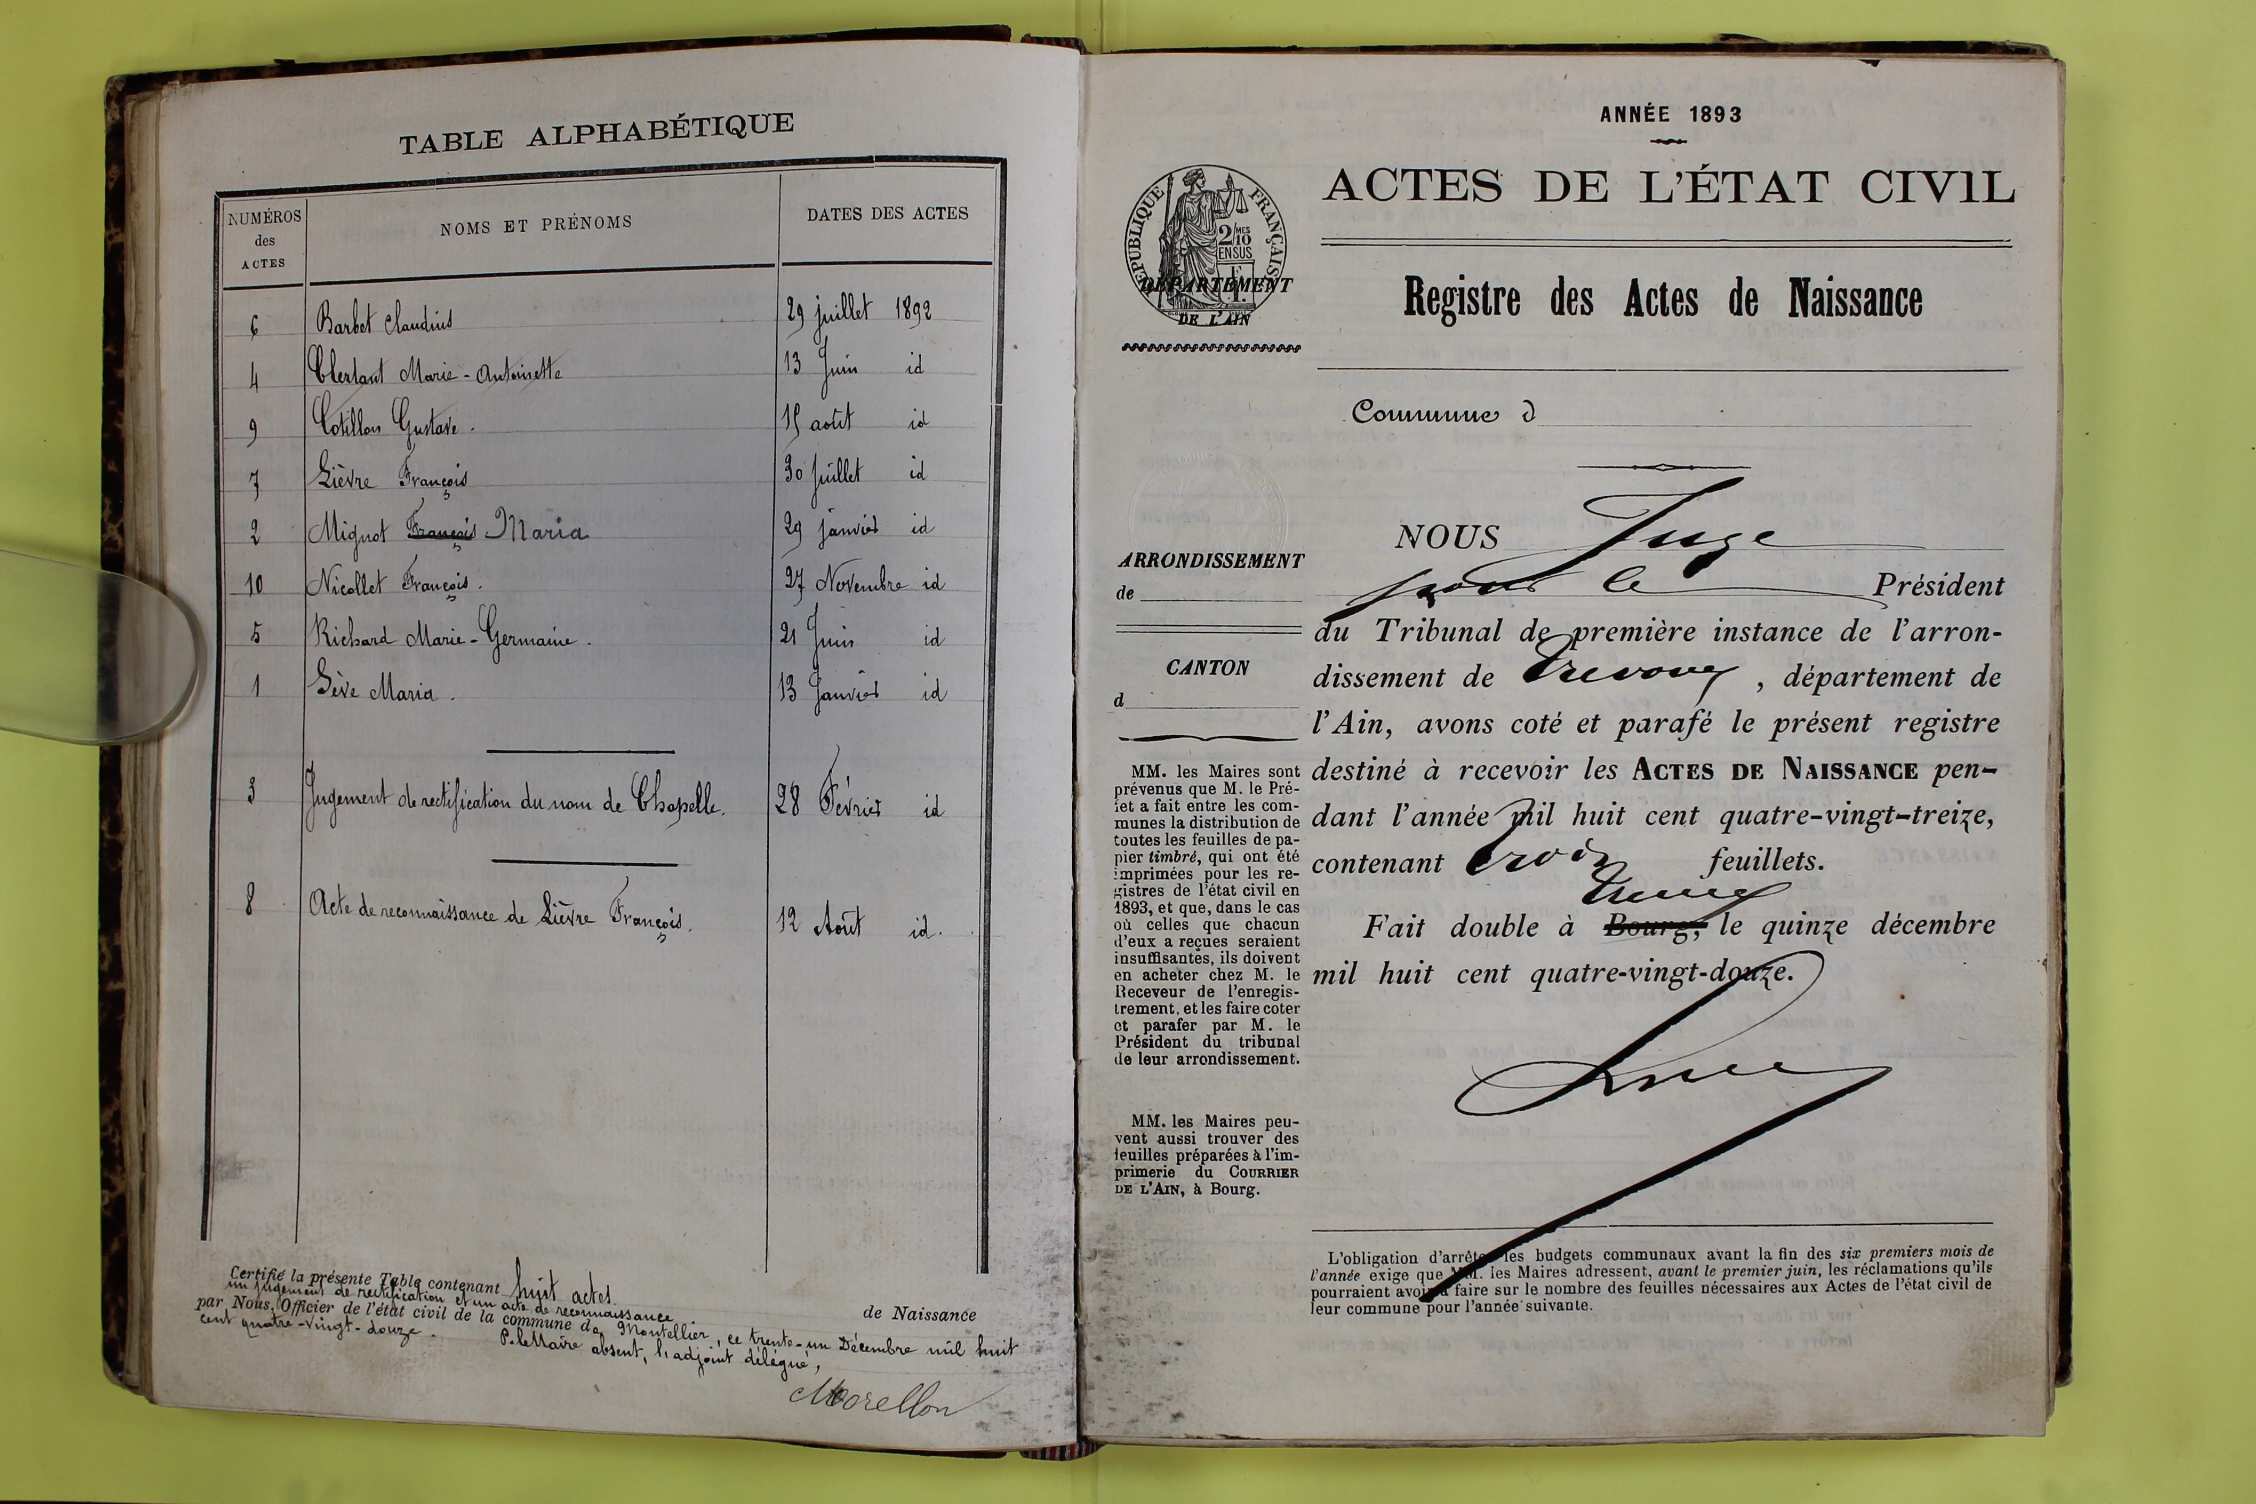 TABLE ALPHABÉTIQUE
NUMÉROS des ACTES
NOMS ET PRÉNOMS
DATES DES ACTES
6 Barbet Claudius 29 juillet 1892
4 Clertant Marie-Antoinette 13 Juin id
9 Cotillon Gustave. 15 août id
7 Lièvre François 30 juillet id
2 Mignot François Maria 29 janvier id
10 Nicollet François. 27 Novembre id
5 Richard Marie-Germaine. 21 Juin id
1 Sève Maria. 13 Janvier id
3 Jugement de rectification du nom de Chapelle. 28 Février id
8 Acte de reconnaissance de Lièvre François. 12 Août id.
Certifié la présente Table contenant huit actes
un jugement de rectification et un acte de reconnaissance. de Naissance
par Nous, Officier de l'état civil de la commune de Montellier, ce trente-un Décembre mil huit
cent quatre-vingt-douze.
P. le Maire absent, l'adjoint délégué,
Morellon
ANNÉE 1893
ACTES DE L'ÉTAT CIVIL
RÉPUBLIQUE FRANÇAISE
2/10 MES
EN SUS
DÉPARTEMENT
DE L'AIN
Registre des Actes de Naissance
Commune d
ARRONDISSEMENT
de
CANTON
d
MM. les Maires sont
prévenus que M. le Pré-
fet a fait entre les com-
munes la distribution de
toutes les feuilles de pa-
pier timbré, qui ont été
imprimées pour les re-
gistres de l'état civil en
1893, et que, dans le cas
où celles que chacun
d'eux a reçues seraient
insuffisantes, ils doivent
en acheter chez M. le
Receveur de l'enregis-
trement, et les faire coter
et parafer par M. le
Président du tribunal
de leur arrondissement.
MM. les Maires peu-
vent aussi trouver des
feuilles préparées à l'im-
primerie du COURRIER
DE L'AIN, à Bourg.
NOUS Juge
pour le Président
du Tribunal de première instance de l'arron-
dissement de Trévoux, département de
l'Ain, avons coté et parafé le présent registre
destiné à recevoir les ACTES DE NAISSANCE pen-
dant l'année mil huit cent quatre-vingt-treize,
contenant trois feuillets.
Trévoux
Fait double à Bourg, le quinze décembre
mil huit cent quatre-vingt-douze.
L'obligation d'arrêter les budgets communaux avant la fin des six premiers mois de
l'année exige que MM. les Maires adressent, avant le premier juin, les réclamations qu'ils
pourraient avoir à faire sur le nombre des feuilles nécessaires aux Actes de l'état civil de
leur commune pour l'année suivante.